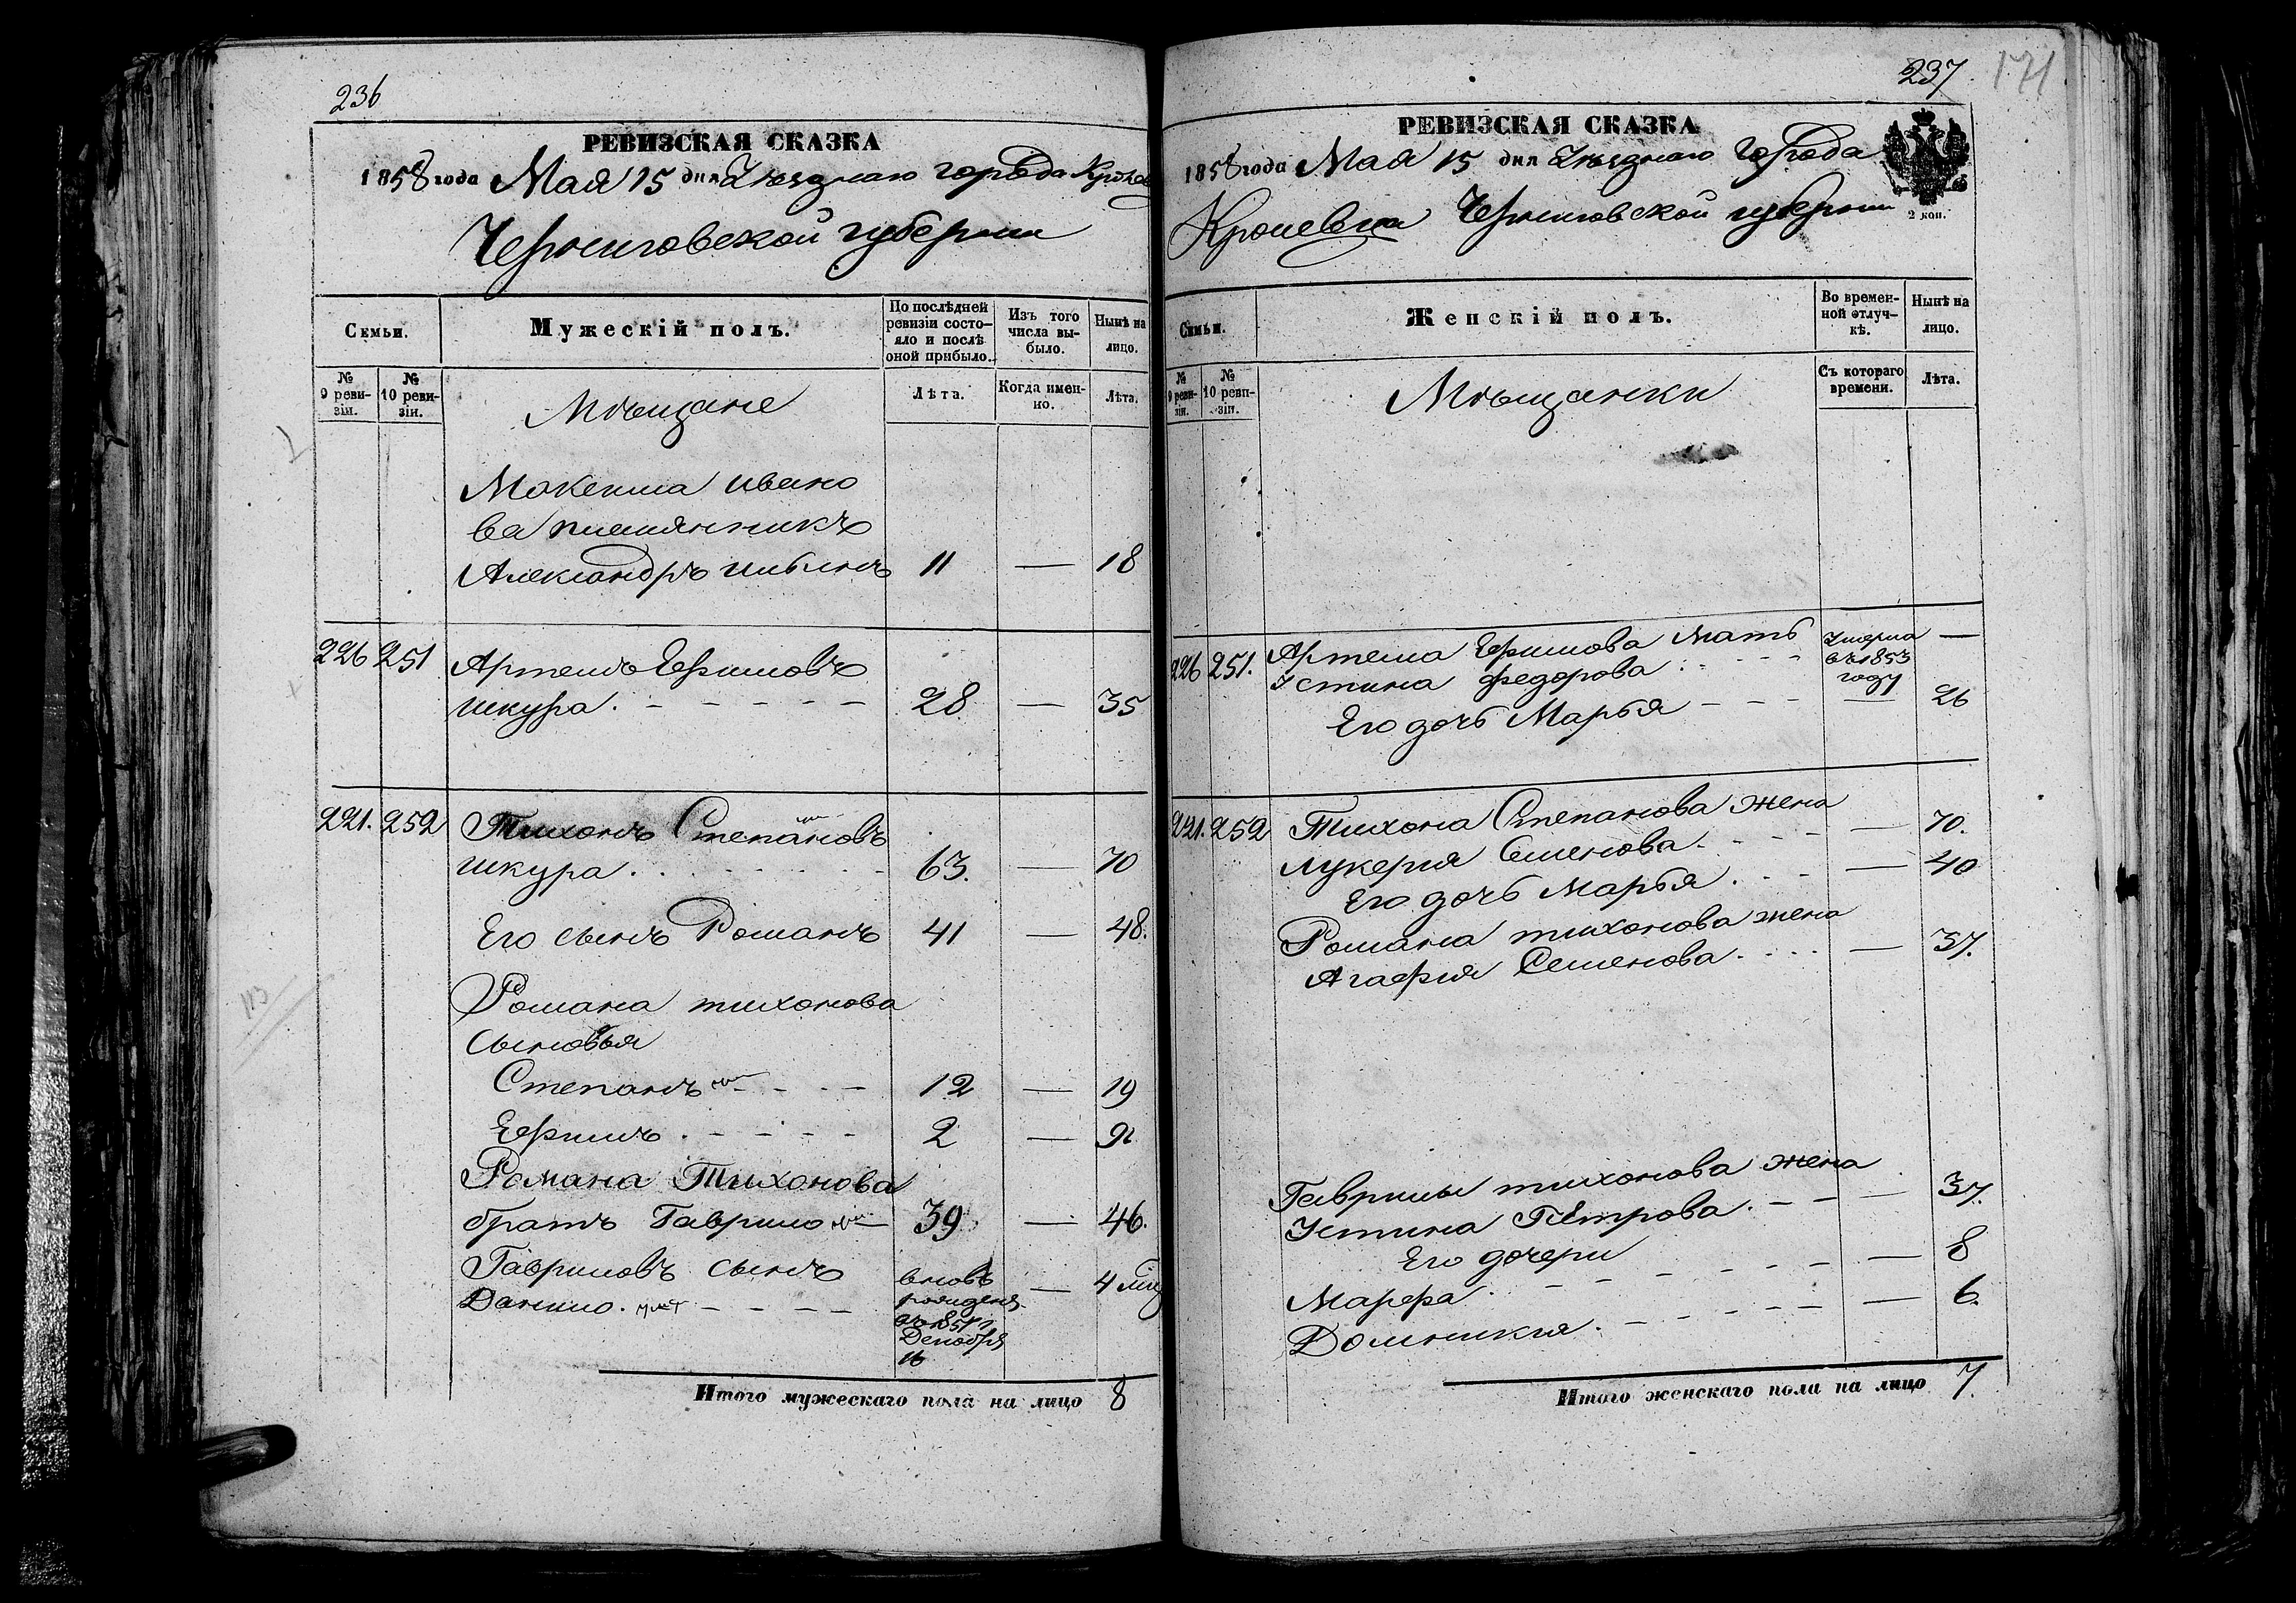 236
РЕВИЗСКАЯ СКАЗКА
1858 года Мая 15 дня Уѣзднаго города Кролев
Черниговской губернии
Семьи.
Мужескій полъ.
По послѣдней ревизіи состояло и послѣ оной прибыло.
Изъ того числа выбыло.
Нынѣ на лицо.
№ 9 ревизіи.
№ 10 ревизіи.
Мѣщане
Лѣта.
Когда именно.
Лѣта.
Мокеиша ивано
ва племянникъ
Александръ 11 — 18
226 251 Артемъ Ефимовъ
шкура 28 — 35
221. 252 Тихонъ Степановъ
шкура 63. — 70
Его сынъ Романъ 41 — 48.
Романа тихонова
сыновья
Степанъ 12 — 19
Ефимъ 2 — 9
Романа Тихонова
братъ Гаврило 39 — 46.
Гавриловъ сынъ вновь — 4
Данило рожденъ
въ 1857 г
Декабря
16
Итого мужескаго пола на лицо 8
237 171
РЕВИЗСКАЯ СКАЗКА
1858 года Мая 15 дня Уѣзднаго города
Кролевца Черниговской губернии
2 коп.
Семьи.
Женскій полъ.
Во временной отлучкѣ.
Нынѣ на лицо.
№ 9 ревизіи.
№ 10 ревизіи.
Мѣщанки
Съ котораго времени.
Лѣта.
226 251. Артема Ефимова мать Умерла —
Устина федорова въ 1853 году
Его дочь Марья — 26
221. 252 Тихона Степанова жена
Лукерия Семенова — 70.
Его дочь Марья — 40
Романа тихонова жена
Агафия Семенова — 37.
Гаврилы тихонова жена
Устина Петрова — 37.
Его дочери
Марфа — 8
Домникия — 6.
Итого женскаго пола на лицо 7.